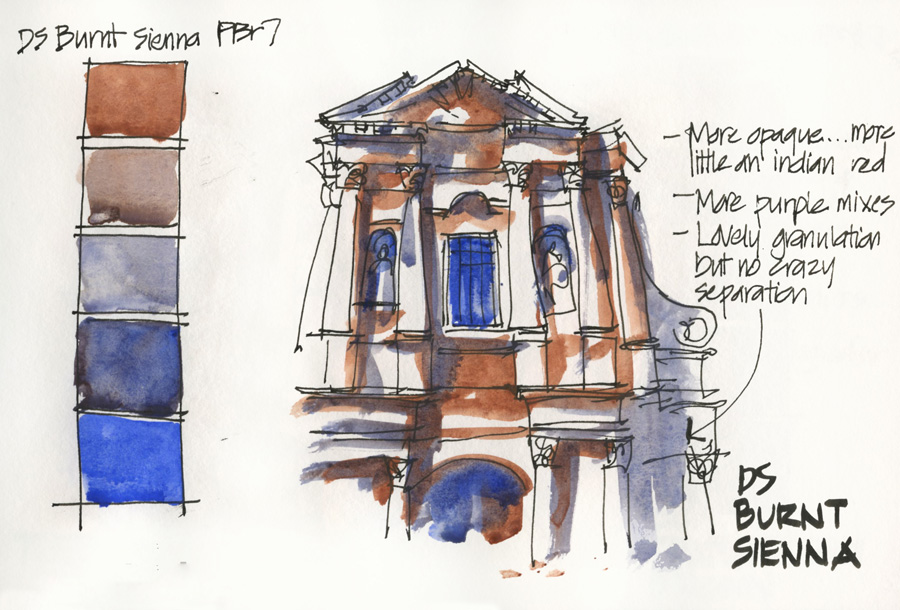 DS Burnt Sienna PBr7
– More opaque...more
little an indian red
– More purple mixes
– Lovely granulation
but no crazy
separation
DS
BURNT
SIENNA